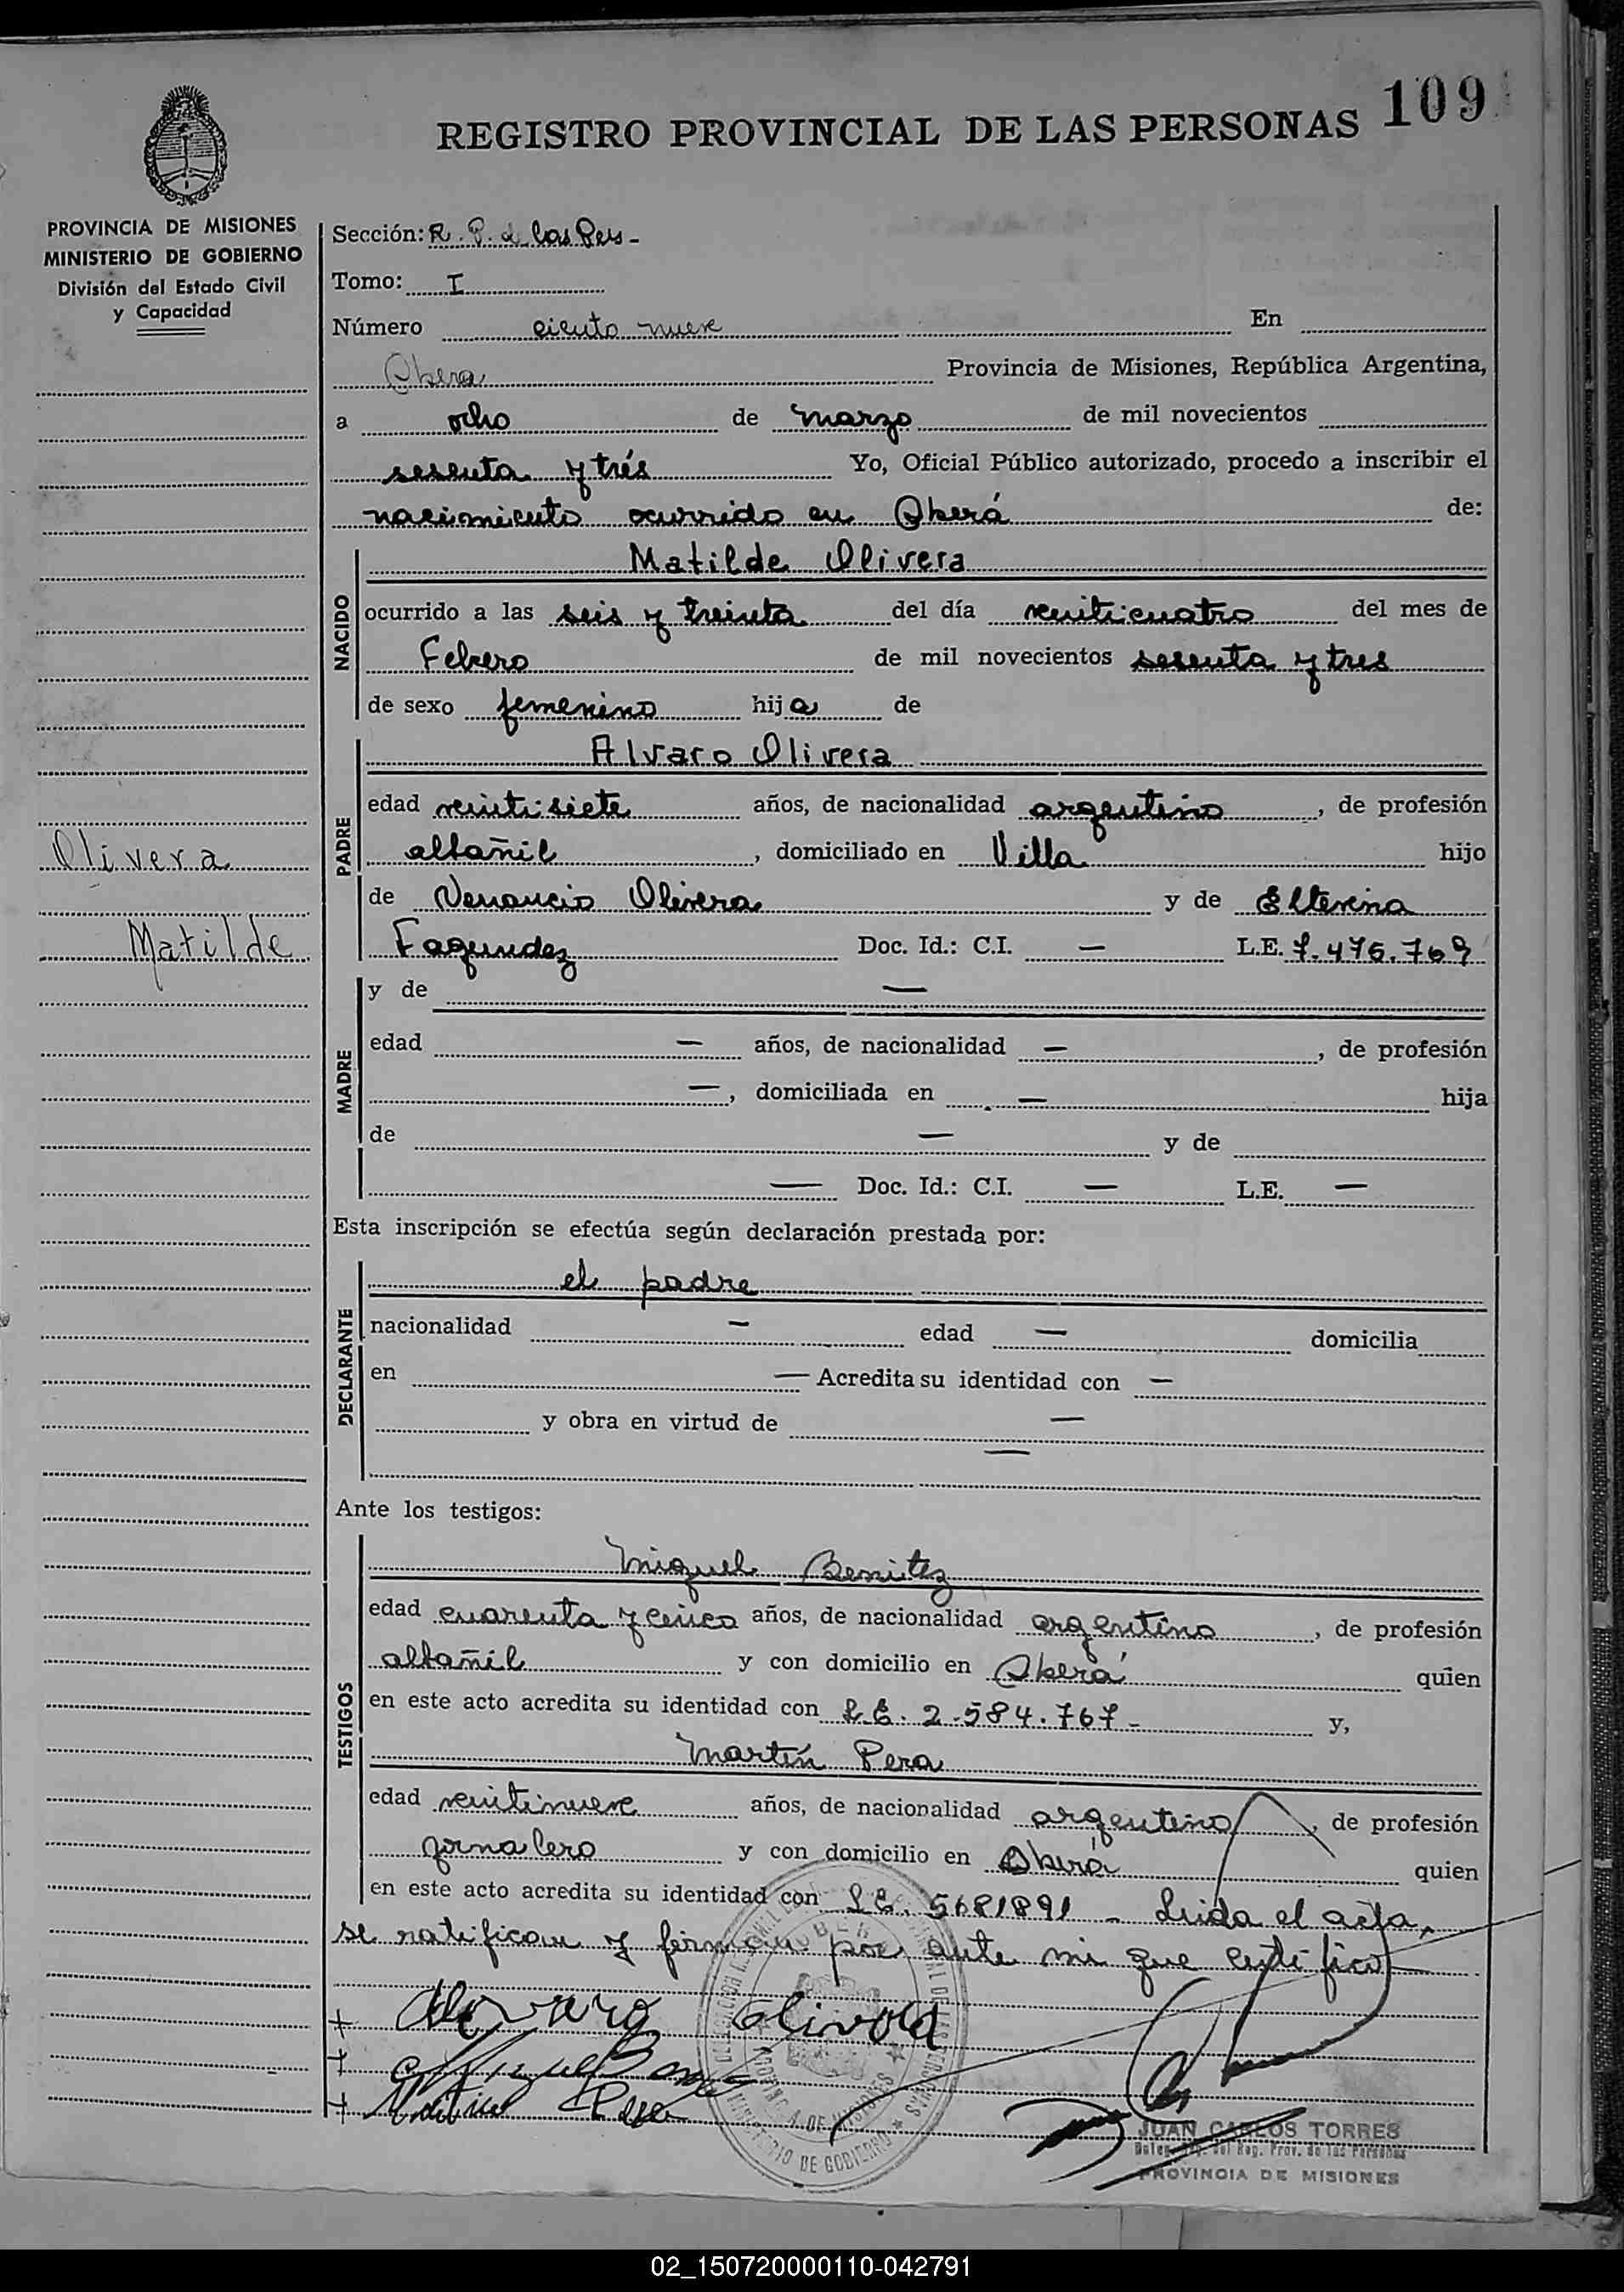 109
REGISTRO PROVINCIAL DE LAS PERSONAS
PROVINCIA DE MISIONES
MINISTERIO DE GOBIERNO
División del Estado Civil
y Capacidad
Olivera
Matilde
Sección: R. P. d las Pers -
Tomo: I
Número ciento nueve En
Obera Provincia de Misiones, República Argentina,
a ocho de marzo de mil novecientos
sesenta y trés Yo, Oficial Público autorizado, procedo a inscribir el
nacimiento ocurrido en Oberá de:
NACIDO
Matilde Olivera
ocurrido a las seis y treinta del día veinticuatro del mes de
Febrero de mil novecientos sesenta y tres
de sexo femenino hija de
PADRE
Alvaro Olivera
edad veintisiete años, de nacionalidad argentino, de profesión
albañil, domiciliado en Villa hijo
de Venancio Olivera y de
Fagundez Doc. Id.: C.I. — L.E. 7.476.769
MADRE
y de —
edad — años, de nacionalidad —, de profesión
—, domiciliada en — hija
de — y de
— Doc. Id.: C.I. — L.E. —
Esta inscripción se efectúa según declaración prestada por:
DECLARANTE
el padre
nacionalidad — edad — domicilia
en — Acredita su identidad con —
y obra en virtud de —
—
Ante los testigos:
TESTIGOS
Miguel Benitez
edad cuarenta y cinco años, de nacionalidad argentino, de profesión
albañil y con domicilio en Oberá quien
en este acto acredita su identidad con L.E. 2.584.767 - y,
Martín Pera
edad veintinueve años, de nacionalidad argentino, de profesión
jornalero y con domicilio en Oberá quien
en este acto acredita su identidad con L.E. 5681891 - Leida el acta,
se ratifican y firman por ante mi que certifico
+ Alvaro Olivera
+ Miguel
+ Martin Pera
MINISTERIO DE GOBIERNO
JUAN CARLOS TORRES
Reg. Prov. de las Personas
PROVINCIA DE MISIONES
02_150720000110-042791